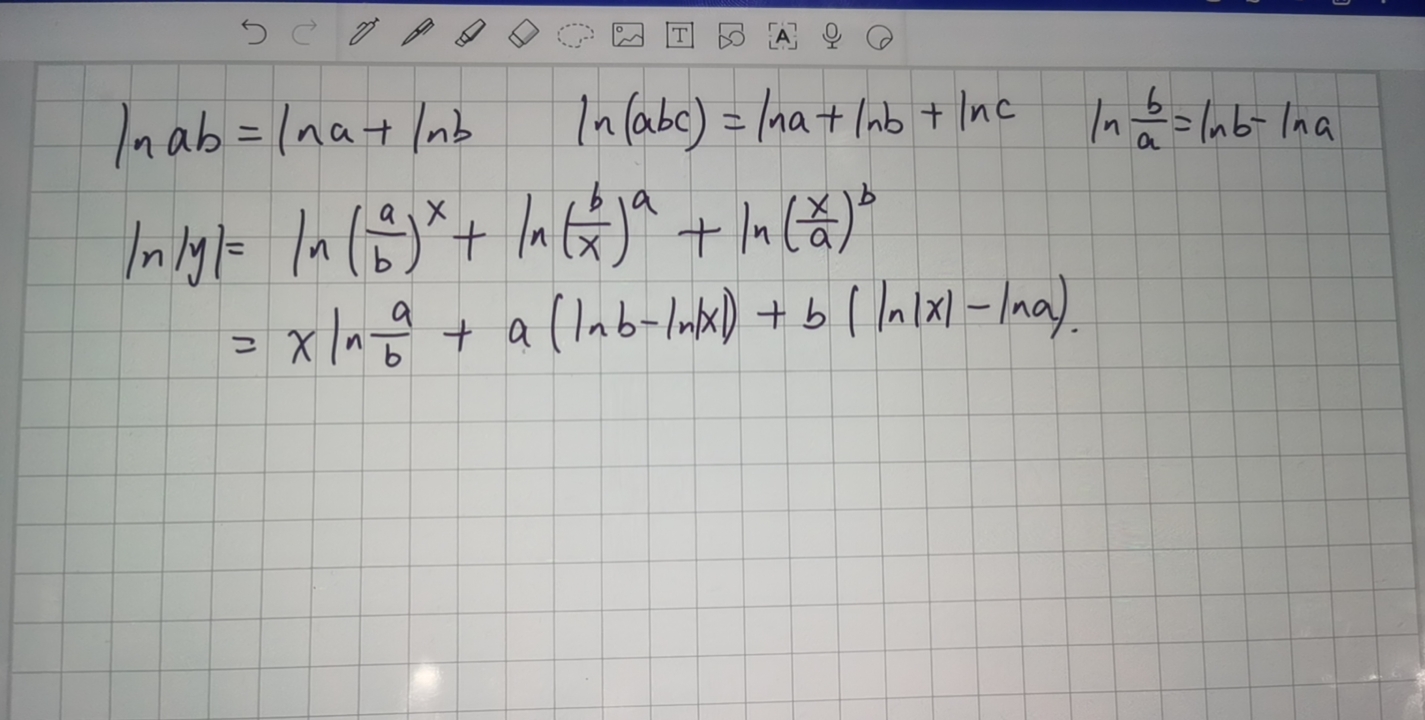 ln ab = ln a + ln b    ln(abc) = ln a + ln b + ln c    ln b/a = ln b - ln a
ln|y| = ln(a/b)^x + ln(b/x)^a + ln(x/a)^b
= x ln a/b + a(ln b - ln|x|) + b(ln|x| - ln a).